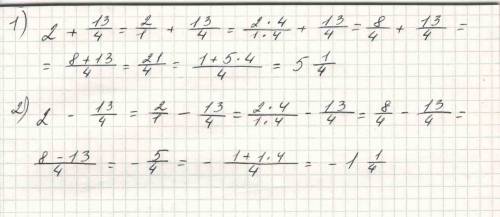 1) 2 + 13/4 = 2/1 + 13/4 = 2·4/1·4 + 13/4 = 8/4 + 13/4 =
= 8+13/4 = 21/4 = 1+5·4/4 = 5 1/4
2) 2 - 13/4 = 2/1 - 13/4 = 2·4/1·4 - 13/4 = 8/4 - 13/4 =
8-13/4 = - 5/4 = - 1+1·4/4 = - 1 1/4